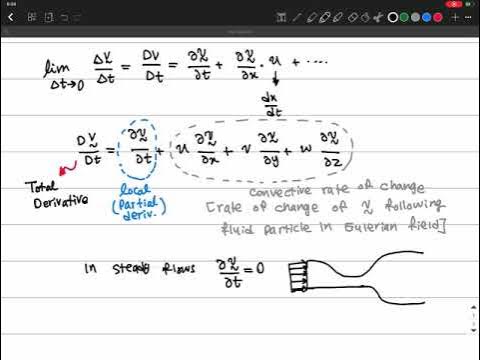 lim Δt→0 ΔV/Δt = DV/Dt = ∂V/∂t + ∂V/∂x · u + ....
dx/dt
DV/Dt = ∂V/∂t + u ∂V/∂x + v ∂V/∂y + w ∂V/∂z
Total Derivative
local (partial deriv.)
convective rate of change
[rate of change of V following
fluid particle in Eulerian field]
In steady flows ∂V/∂t = 0